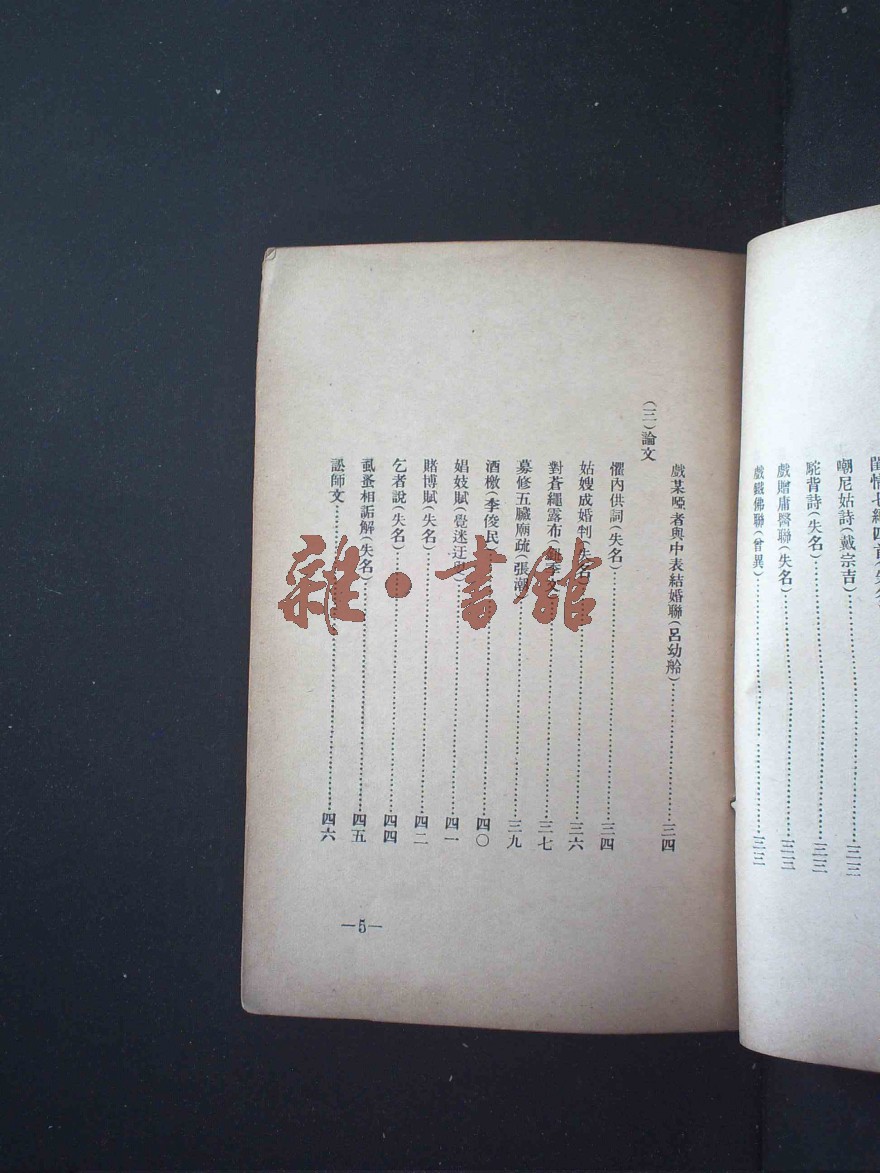 嘲尼姑詩(戴宗吉)……三三
駝背詩(失名)……三三
戲贈庸醫聯(失名)……三三
戲鐵佛聯(曾異)……三三
戲某啞者與中表結婚聯(呂幼舲)……三四
(三)論文
懼內供詞(失名)……三四
姑嫂成婚判(失名)……三六
對蒼繩露布……三七
募修五臟廟疏(張潮)……三九
酒檄(李俊民)……四〇
娼妓賦(覺迷迂叟)……四一
賭博賦(失名)……四二
乞者說(失名)……四四
虱蚤相詬解(失名)……四五
訟師文……四六
—5—
雜·書館